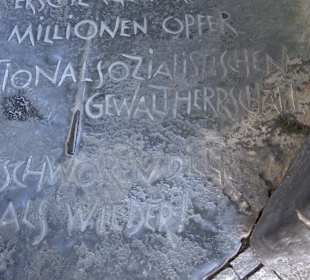 MILLIONEN OPFER
TIONALSOZIALISTISCHEN
GEWALTHERRSCHAFT
SCHWÖREN
ALS WIEDER!